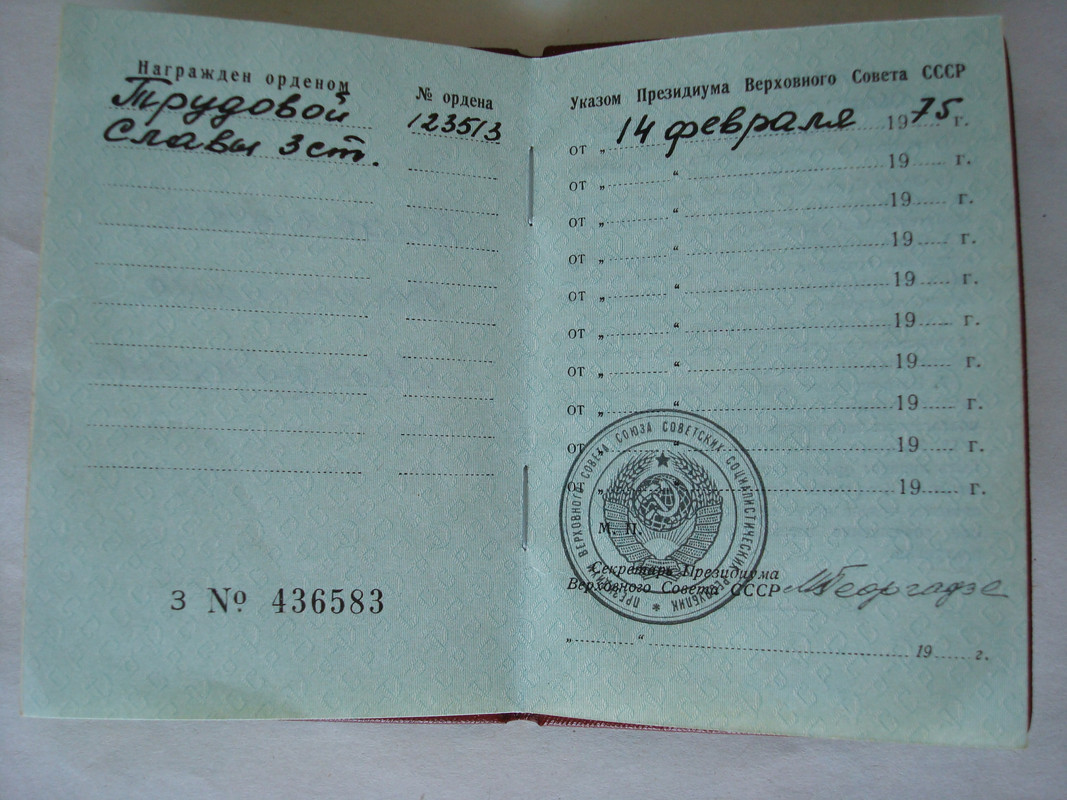 Награжден орденом
Трудовой
Славы 3 ст.
№ ордена
123513
З № 436583
Указом Президиума Верховного Совета СССР
от „ 14 февраля 1975 г.
от „ “ 19 г.
от „ “ 19 г.
от „ “ 19 г.
от „ “ 19 г.
от „ “ 19 г.
от „ “ 19 г.
от „ “ 19 г.
от „ “ 19 г.
от „ “ 19 г.
ПРЕЗИДИУМ ВЕРХОВНОГО СОВЕТА СОЮЗА СОВЕТСКИХ СОЦИАЛИСТИЧЕСКИХ РЕСПУБЛИК *
М. П.
Секретарь Президиума
Верховного Совета СССР МГеоргадзе
„ “ 19 г.